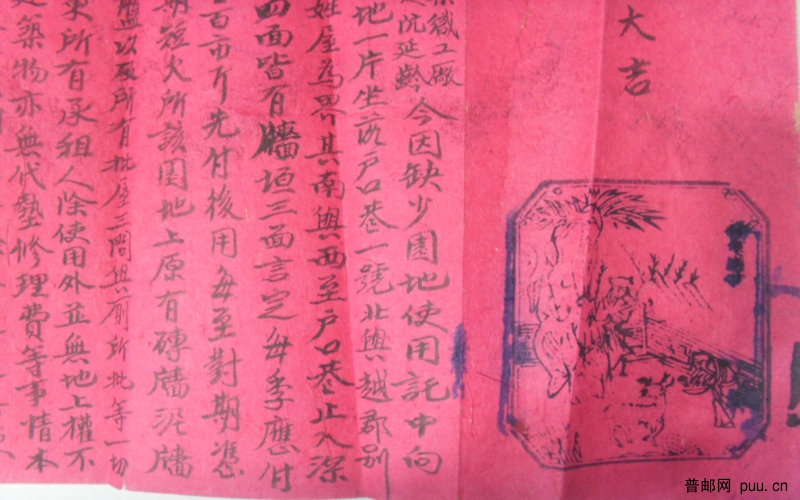 大吉
織工廠
沈延齡 今因缺少園地使用託中向
地一片坐落戸口巷一號北與越郡別
姓屋為界其南與西至戸口巷止入深
四面皆有牆垣三面言定每季應付
百市斤先付後用每至對期憑
期短欠所該園地上原有磚牆泥牆
以及所有批屋二間與厠所批等一切
更所有承租人除使用外並無地上權不
築物亦無代墊修理費等事情本
普邮网 puu.cn